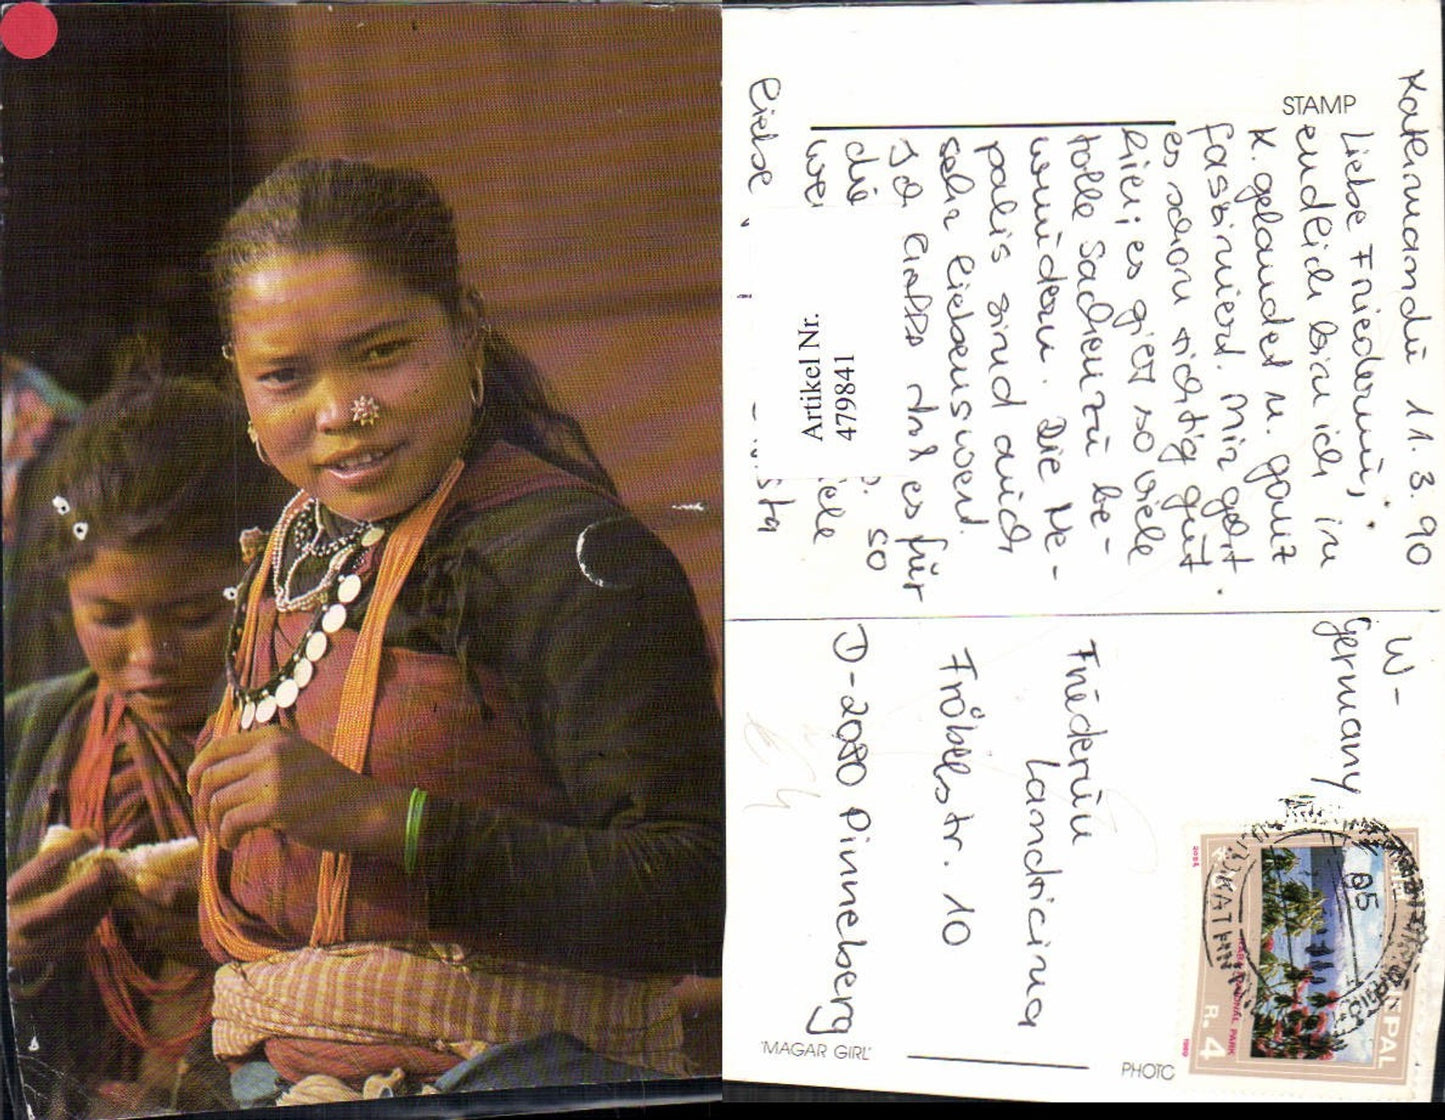 Katırmandü 11.3.90
Liebe Friederun,
endlich bin ich in
K. gelandet u. ganz
fasziniert. Mir geht
es schon richtig gut
hier; es gibt so viele
tolle Sachen zu be-
wundern. Die Ne-
palis sind auch
sehr liebenswert.
Ich hoffe es für
die so
Liebe
Artikel Nr.
479841
STAMP
W-
Germany
Friederun
Landicina
Fröbelstr. 10
D-2080 Pinneberg
'MAGAR GIRL'
PHOTO
NEPAL
RARA NATIONAL PARK
R. 4
1989
KATHMANDU